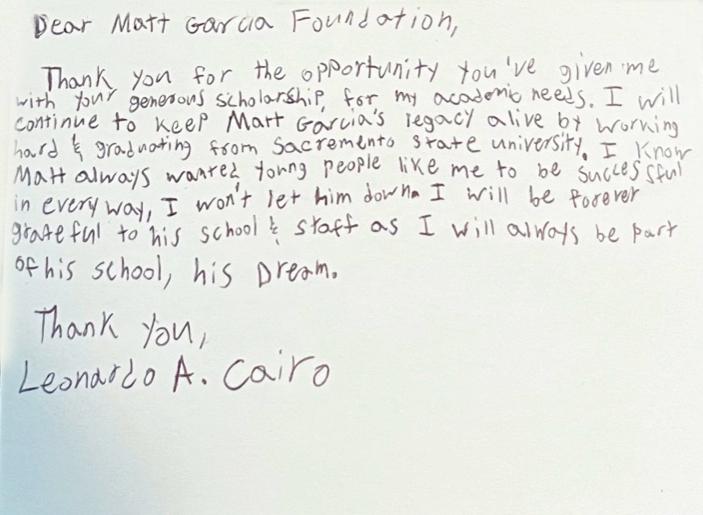 Dear Matt Garcia Foundation,
Thank you for the opportunity you've given me
with your generous scholarship, for my academic needs. I will
continue to keep Matt Garcia's legacy alive by working
hard & graduating from Sacremento state university. I know
Matt always wanted young people like me to be successful
in every way, I won't let him down. I will be forever
grateful to his school & staff as I will always be part
of his school, his Dream.
Thank you,
Leonardo A. Cairo